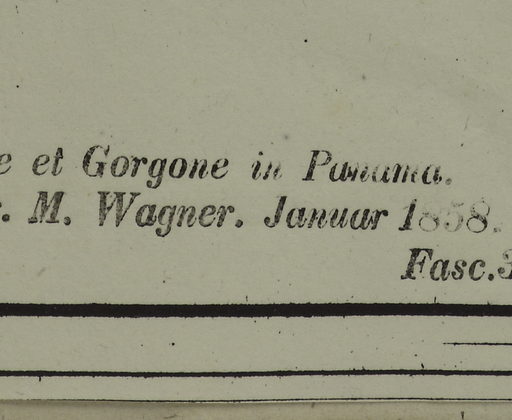 et Gorgone in Panama.
M. Wagner. Januar 1858.
Fasc.